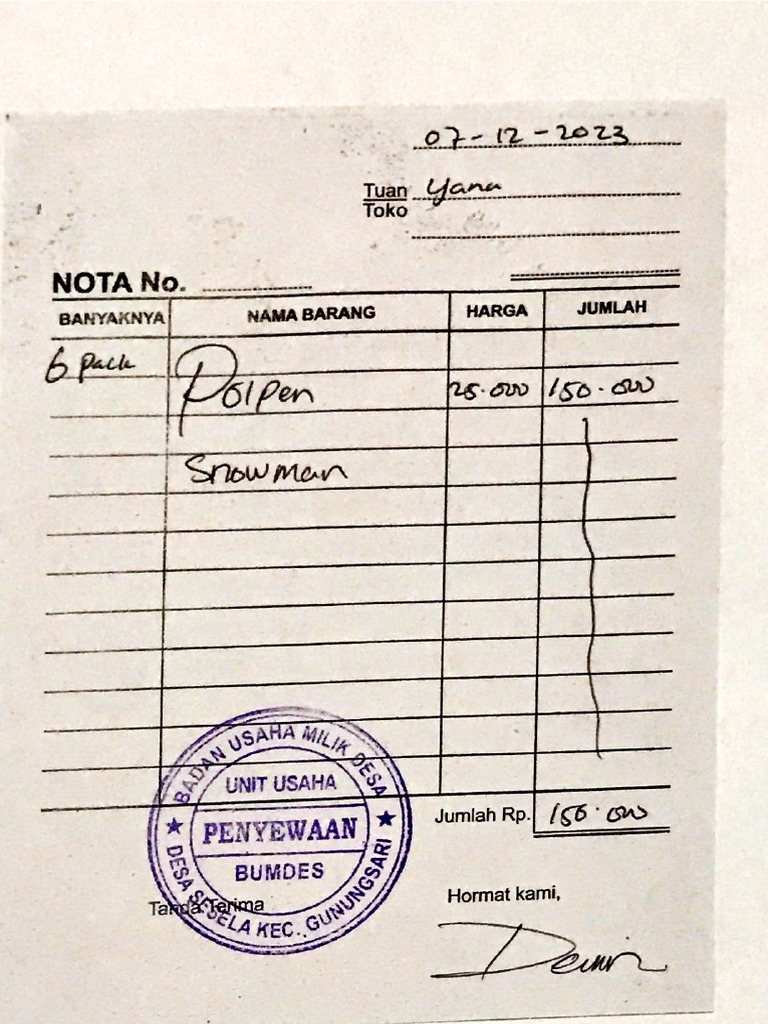 07-12-2023
Tuan Yana
Toko
NOTA No.
BANYAKNYA NAMA BARANG HARGA JUMLAH
6 pack Polpen 25.000 150.000
Snowman
Jumlah Rp. 150.000
BADAN USAHA MILIK DESA
UNIT USAHA
★ PENYEWAAN ★
BUMDES
DESA SESELA KEC. GUNUNGSARI
Tanda Terima
Hormat kami,